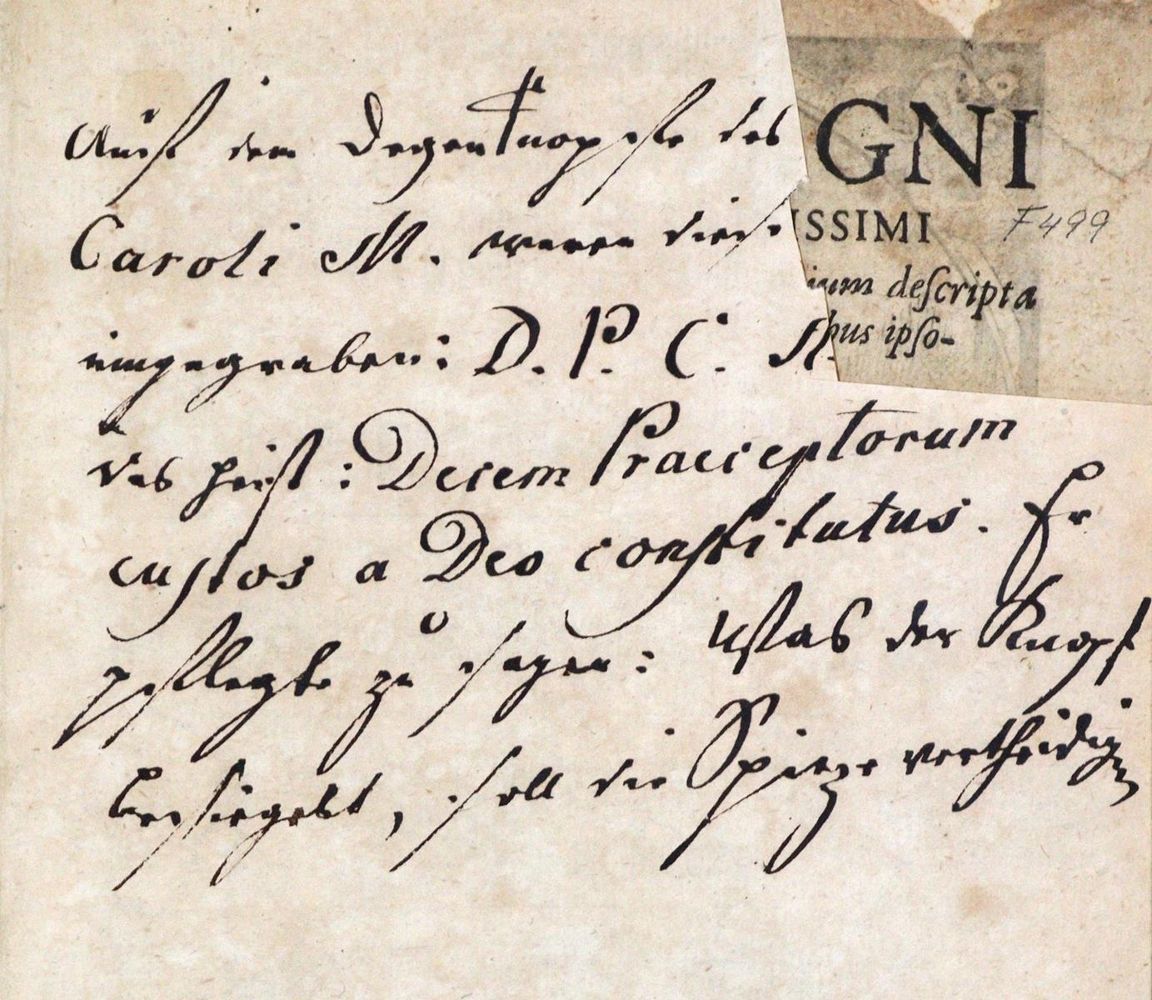 Auff dem Degenknopffe des
Caroli M. waren diese
eingegraben: D. P. C. A.
das heist: Decem Praeceptorum
custos a Deo constitutus. Er
pflegte zu sagen: Was der Knopf
besiegelt, soll die Spieze vertheidigen
GNI
ISSIMI
F499
ium deſcripta
bus ipſo-